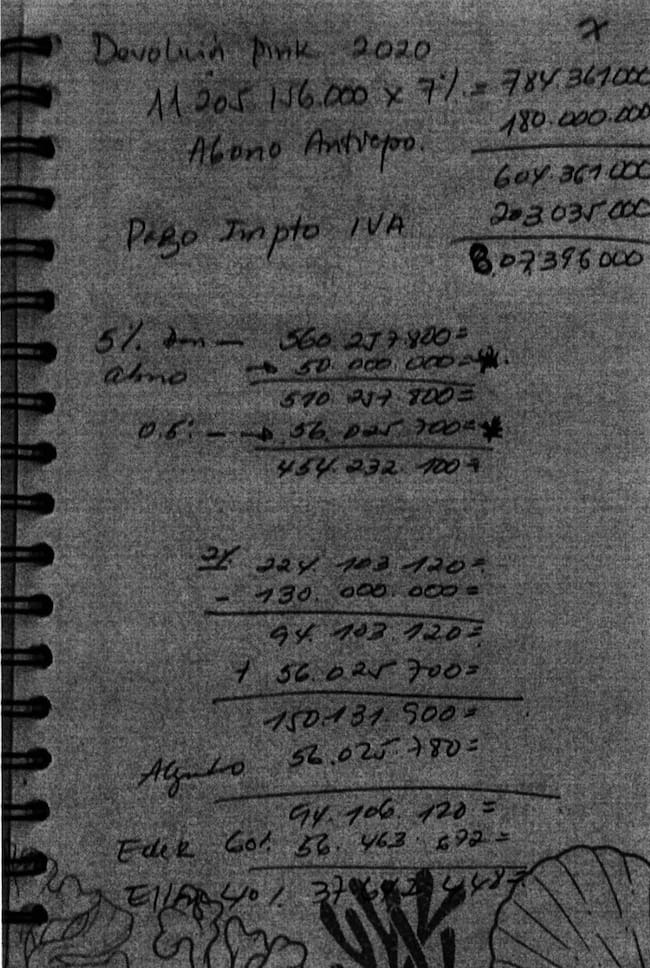 x
Devolución pink 2020
11.205.156.000 x 7% = 784.361.000
180.000.000
Abono Antrepo.
604.361.000
203.035.000
Pago Impto IVA
807.396.000
5% — 560.257.800=
abno → 50.000.000=
510.257.800=
0.5: — → 56.025.700=
454.232.100=
2% 224.103.120=
- 130.000.000=
94.103.120=
+ 56.025.700=
150.131.900=
56.025.780=
94.106.120=
Eder 60% 56.463.672=
40%